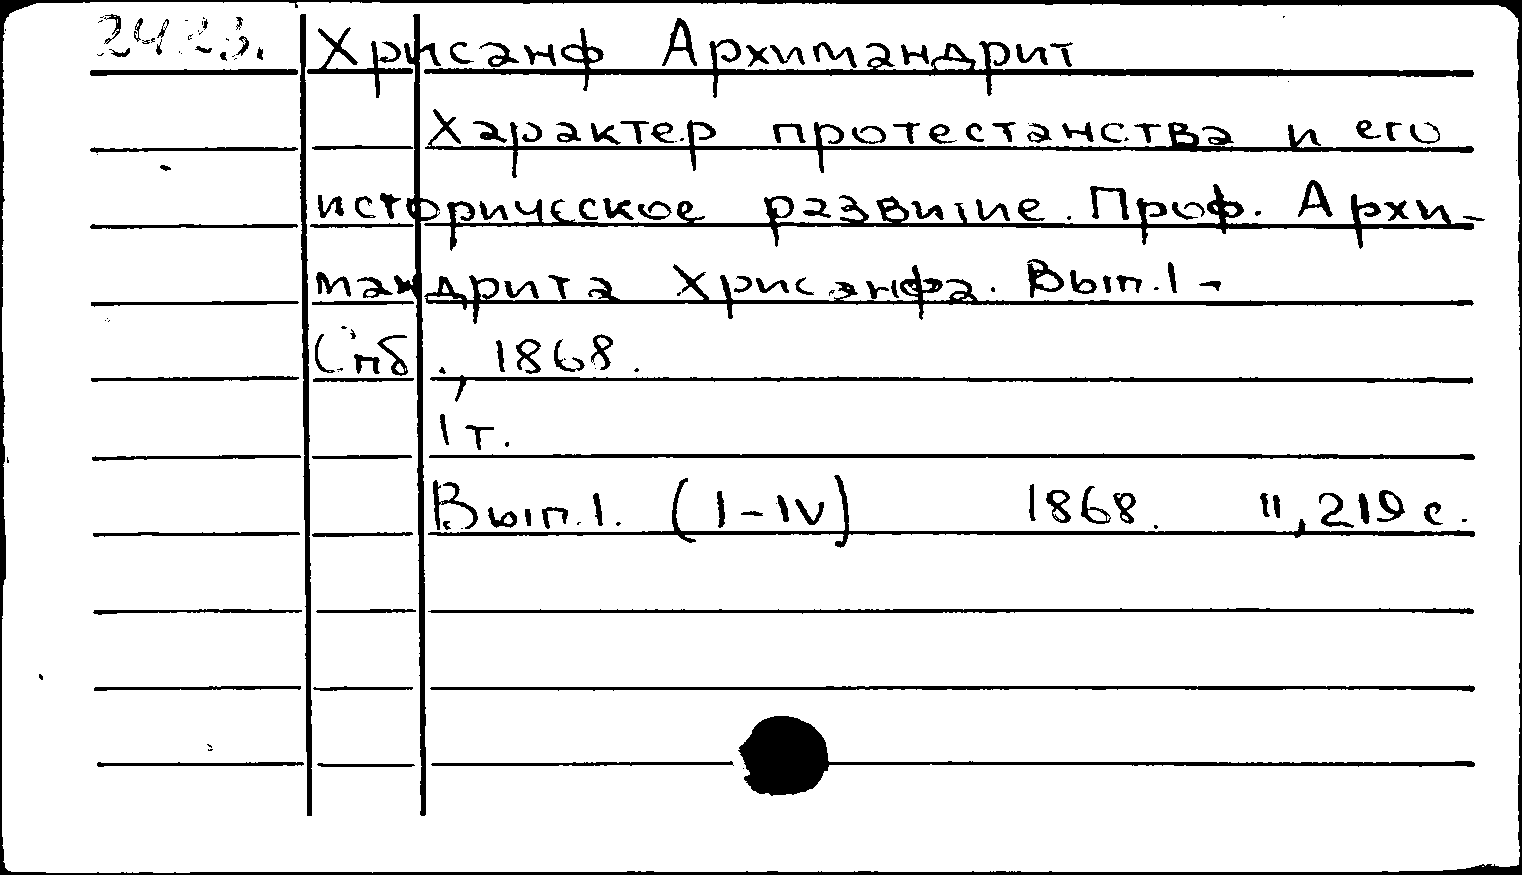 2423. Хрисанф Архимандрит
Характер протестанства и его
историческое развитие. Проф. Архи-
мандрита Хрисанфа. Вып. I -
Спб., 1868.
1 т.
Вып. I. (I-IV) 1868. II, 219 с.